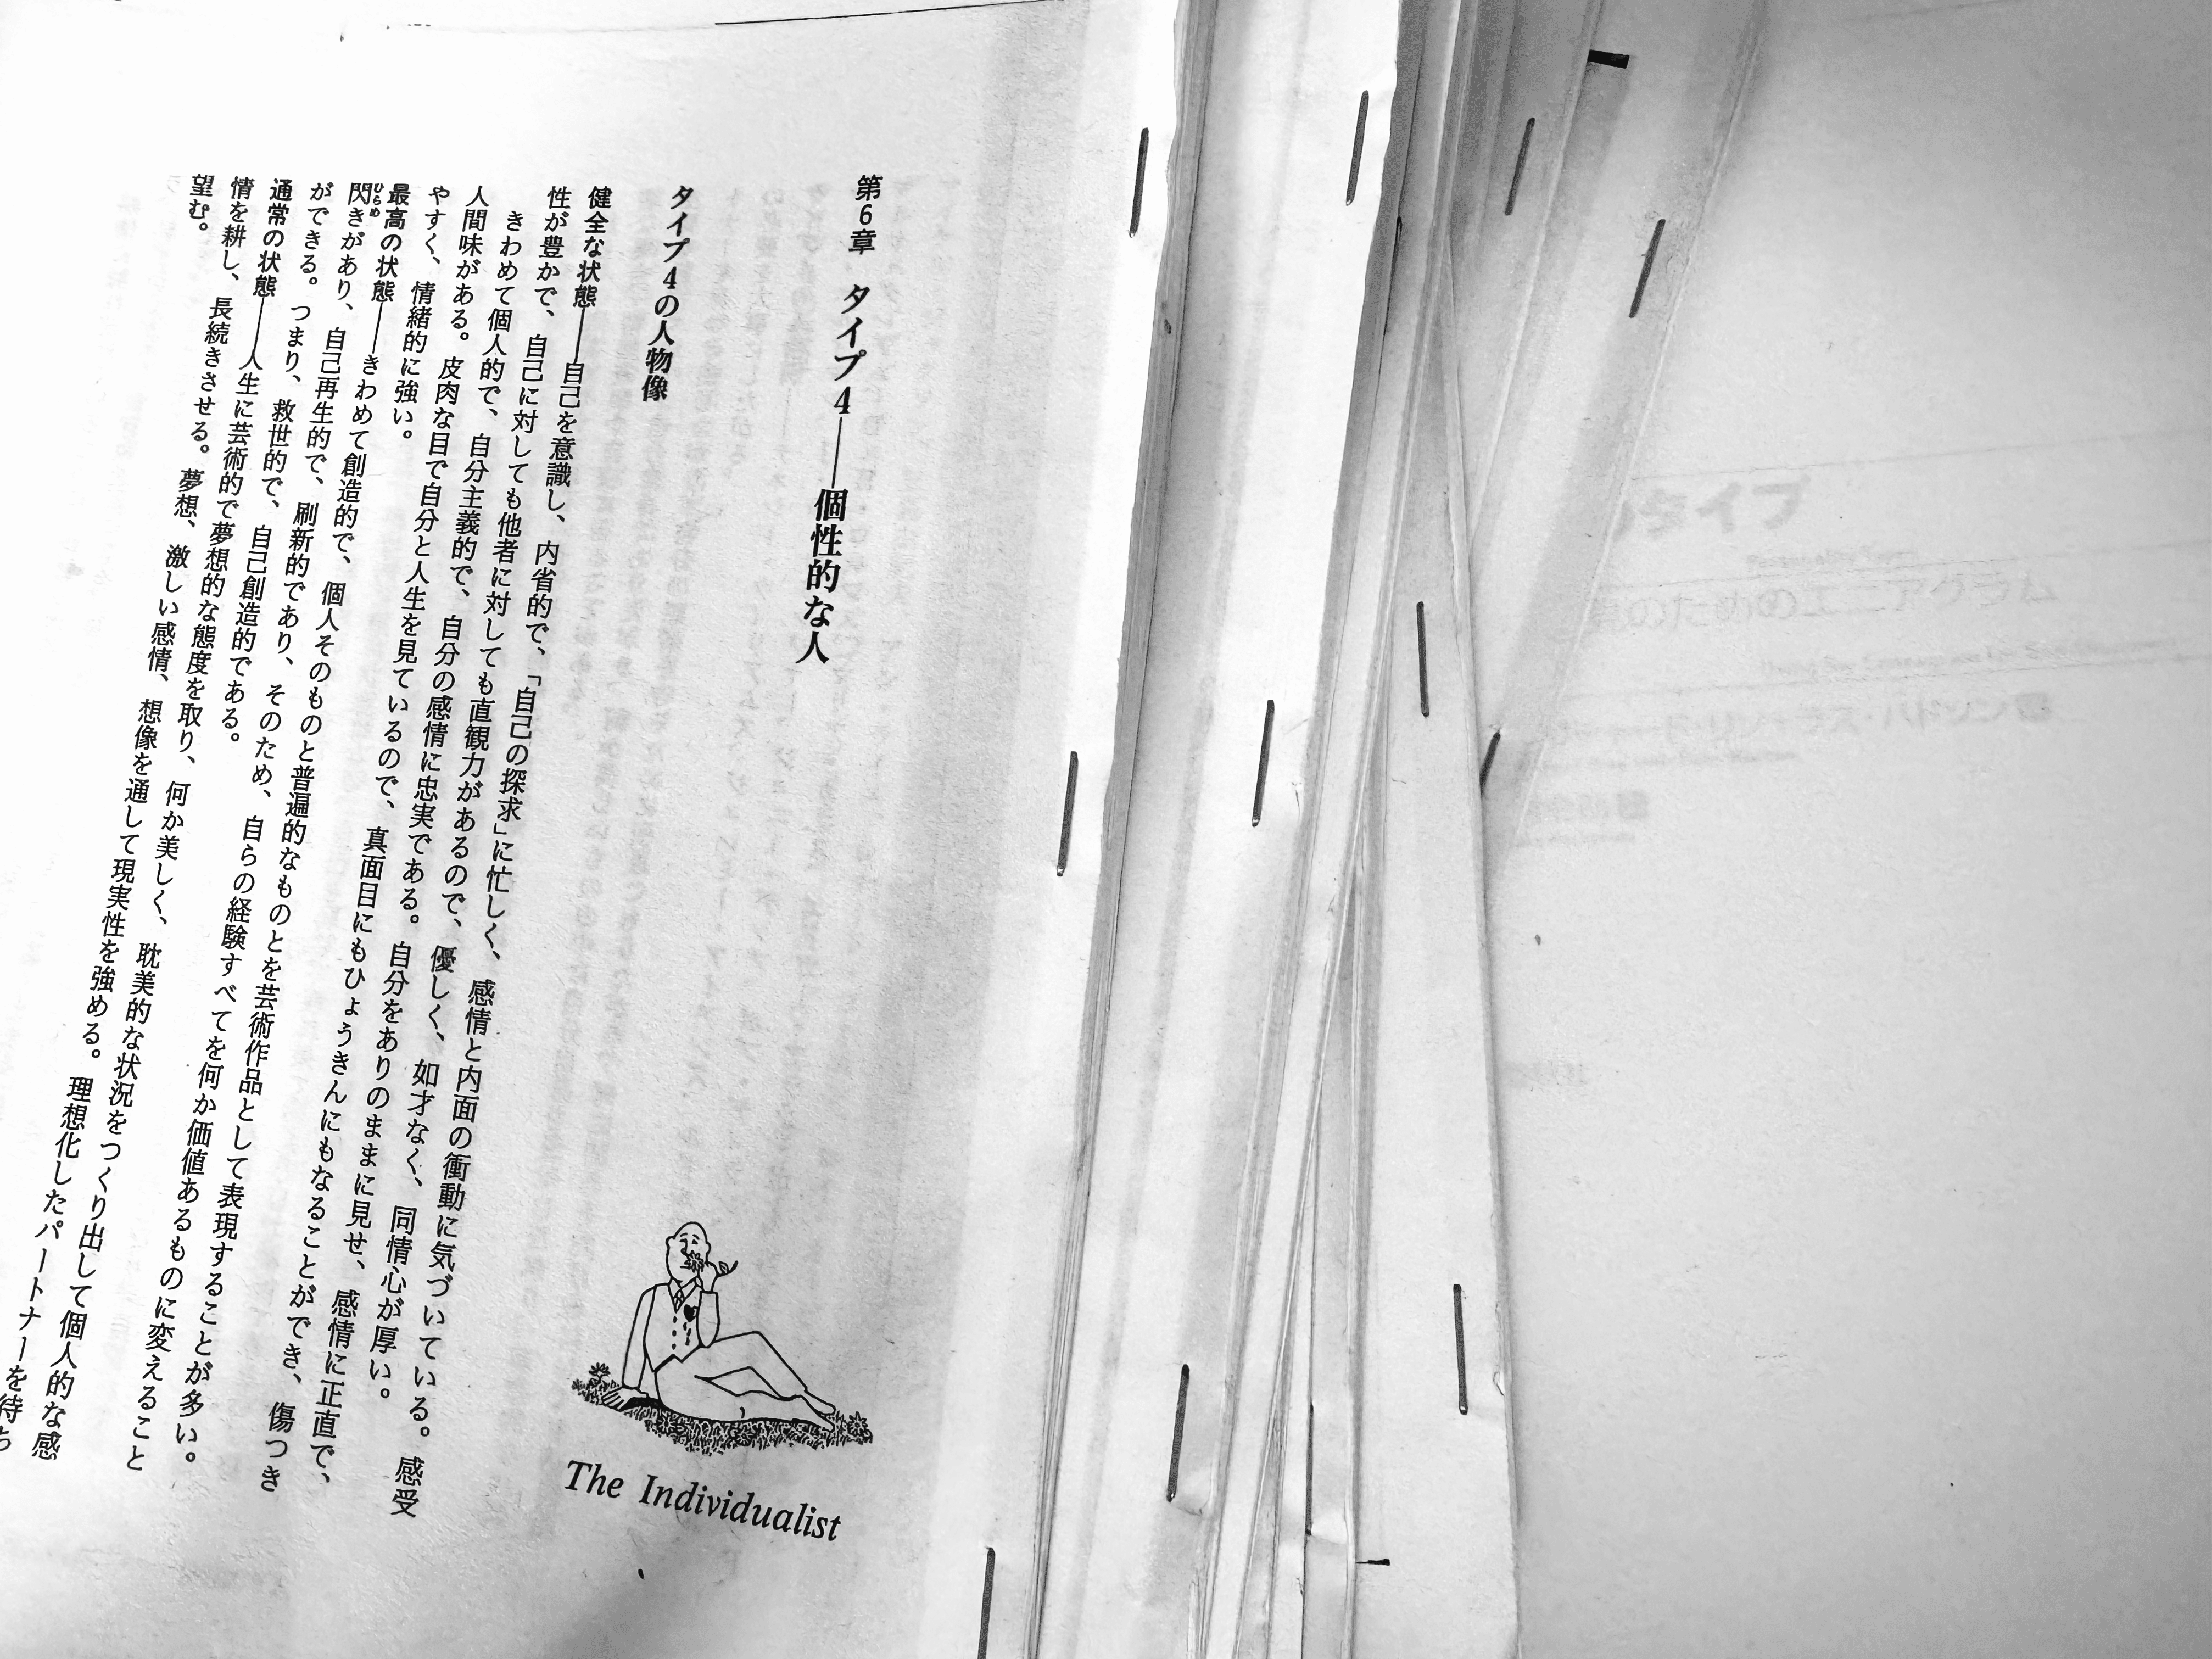 第6章 タイプ4――個性的な人
タイプ4の人物像
健全な状態――自己を意識し、内省的で、「自己の探求」に忙しく、感情と内面の衝動に気づいている。感受
性が豊かで、自己に対しても他者に対しても直観力があるので、優しく、如才なく、同情心が厚い。
きわめて個人的で、自分主義的で、自分の感情に忠実である。自分をありのままに見せ、感情に正直で、
人間味がある。皮肉な目で自分と人生を見ているので、真面目にもひょうきんにもなることができ、傷つき
やすく、情緒的に強い。
最高の状態――きわめて創造的で、個人そのものと普遍的なものとを芸術作品として表現することが多い。
閃きがあり、自己再生的で、刷新的であり、そのため、自らの経験すべてを何か価値あるものに変えること
ができる。つまり、救世的で、自己創造的である。
通常の状態――人生に芸術的で夢想的な態度を取り、何か美しく、耽美的な状況をつくり出して個人的な感
情を耕し、長続きさせる。夢想、激しい感情、想像を通して現実性を強める。理想化したパートナーを待ち
望む。
ひらめ
The Individualist
タイプ
Personality Types
のためのエニアグラム
リチャード・リソ+ラス・ハドソン